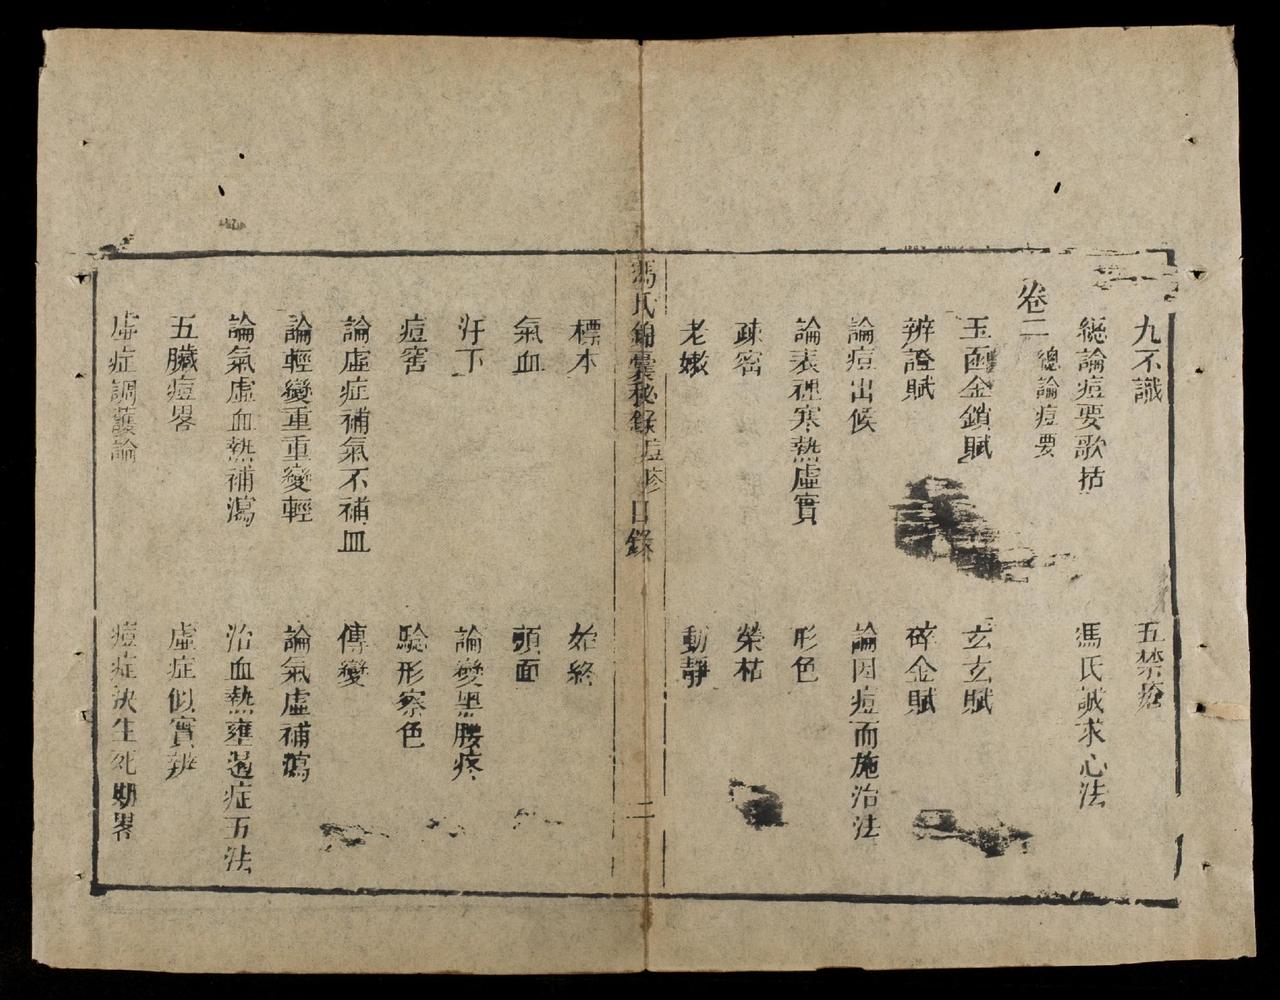 九不識 五禁瘡
總論痘要歌括 馮氏誠求心法
卷二 總論痘要
玉函金鎖賦 玄玄賦
辨證賦 碎金賦
論痘出候 論因痘而施治法
論表裡寒熱虛實 形色
疎密 榮枯
老嫩 動靜
馮氏錦囊秘錄 痘疹 目錄 二
標本 始終
氣血 頭面
汗下 論變黑腰疼
痘窖 驗形察色
論虛症補氣不補血 傳變
論輕變重重變輕 論氣虛補瀉
論氣虛血熱補瀉 治血熱壅遏症五法
五臟痘畧 虛症似實辨
虛症調護論 痘症決生死期畧